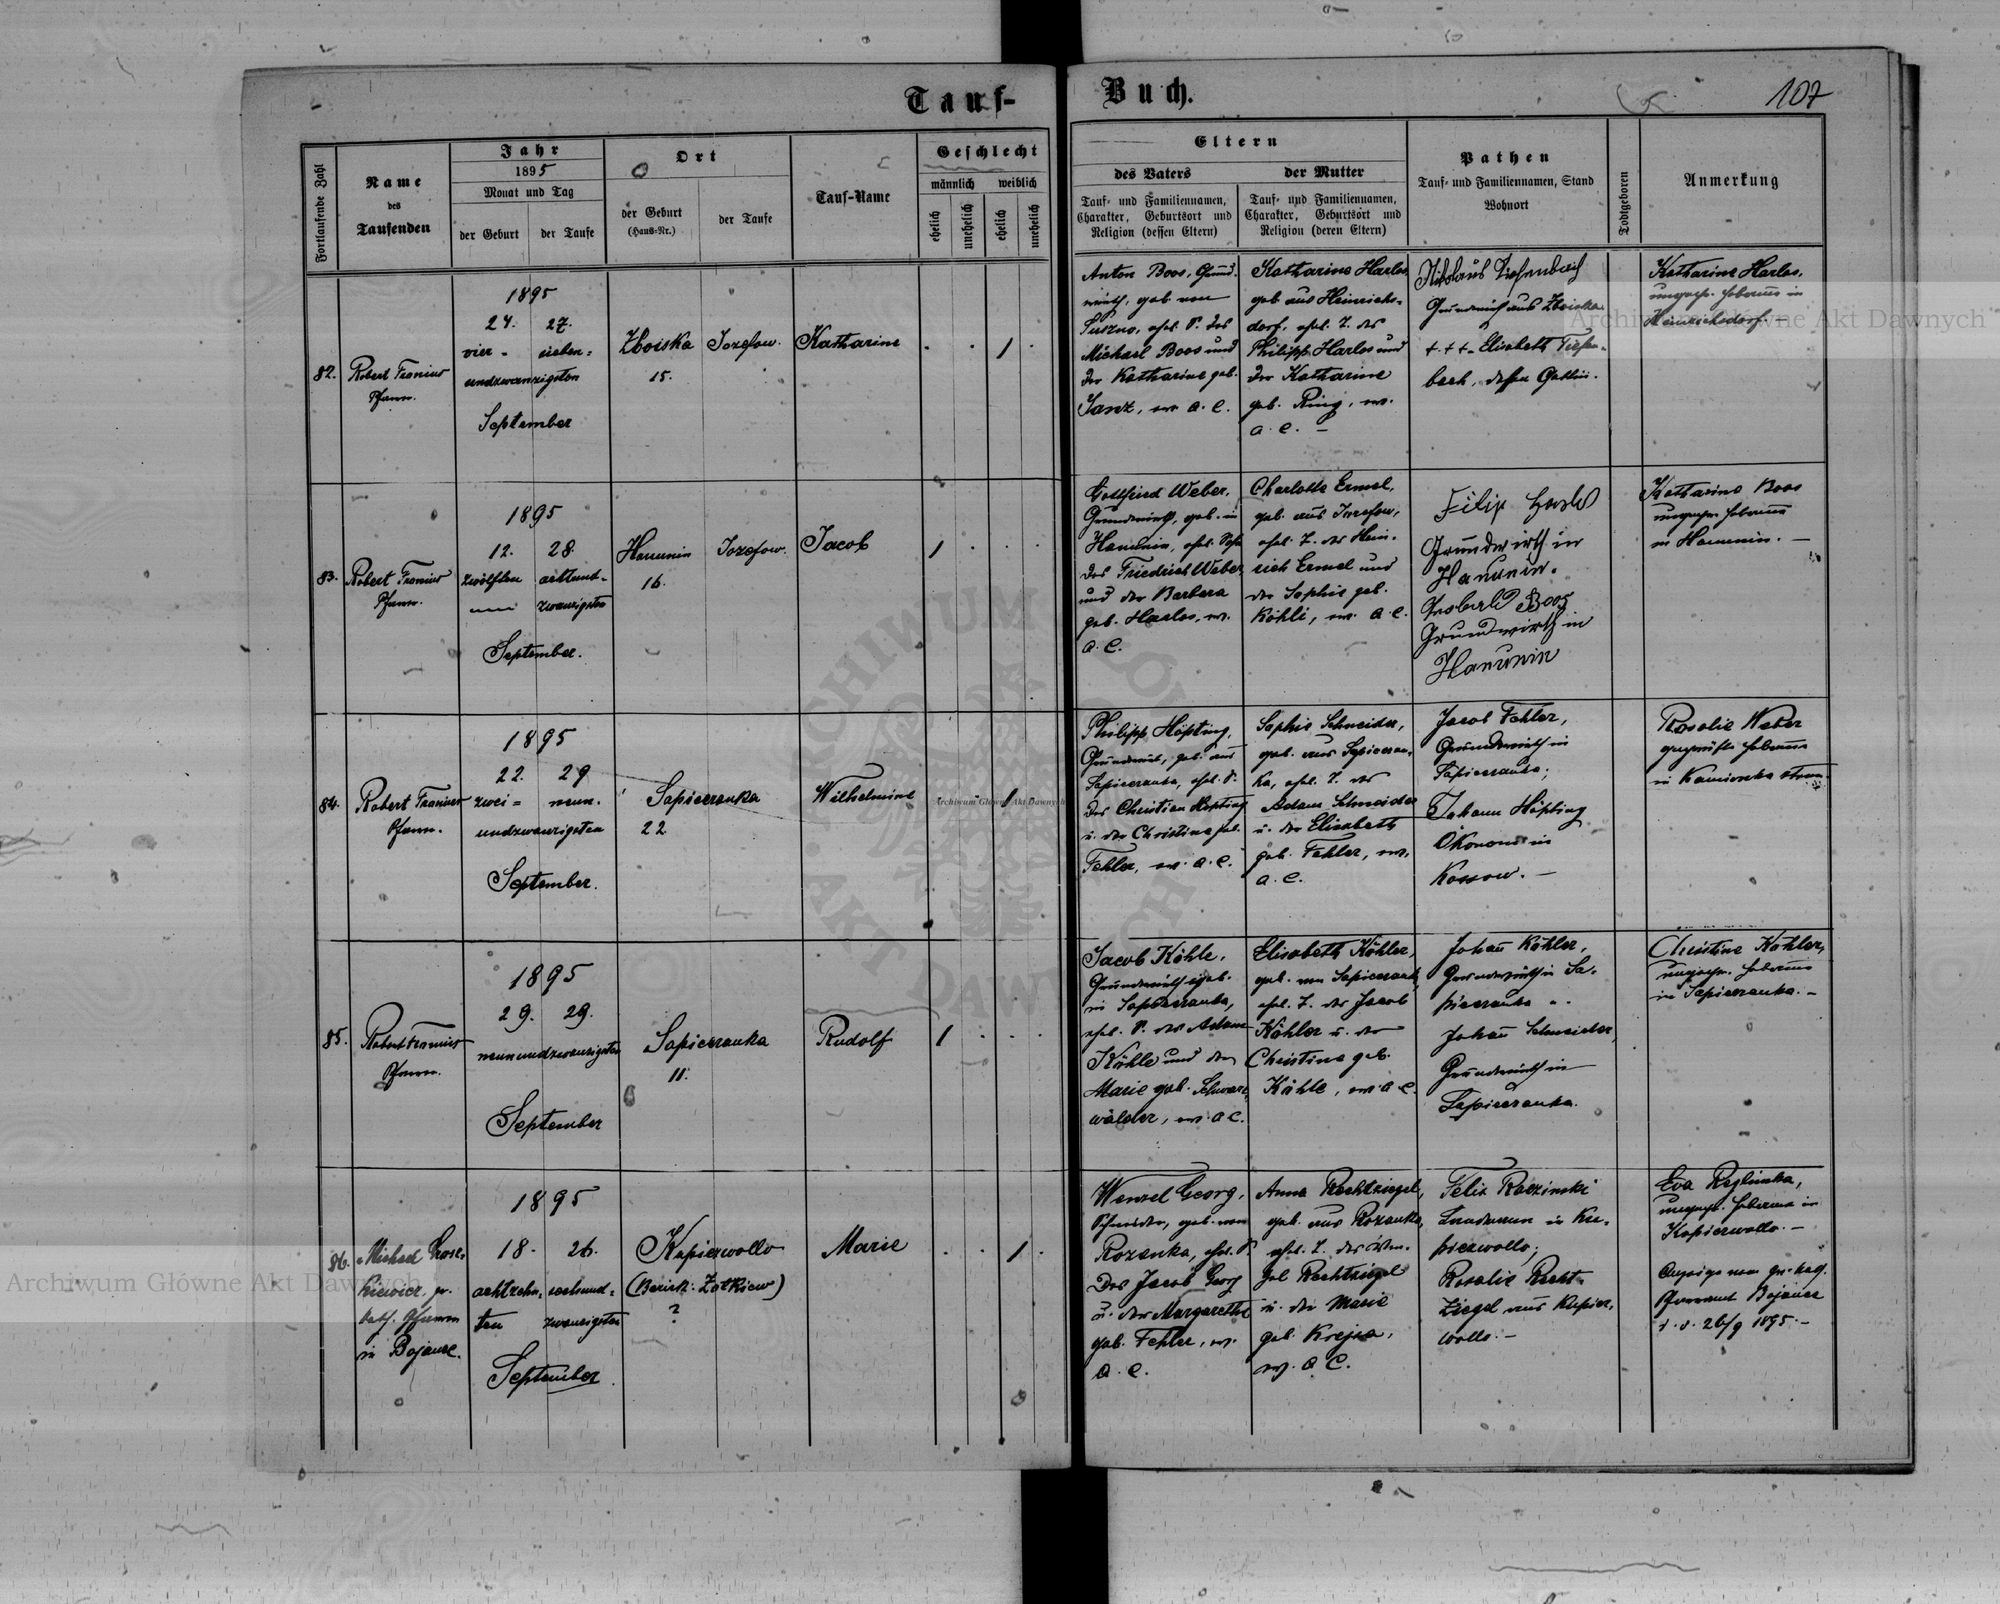 Tauf-
Buch.
107
Fortlaufende Zahl
Name
des
Taufenden
Jahr
1895
Monat und Tag
der Geburt
der Taufe
Ort
der Geburt
(Haus-Nr.)
der Taufe
Tauf-Name
Geschlecht
männlich weiblich
ehelich
unehelich
ehelich
unehelich
Eltern
des Vaters
Tauf- und Familiennamen,
Charakter, Geburtsort und
Religion (dessen Eltern)
der Mutter
Tauf- und Familiennamen,
Charakter, Geburtsort und
Religion (deren Eltern)
Pathen
Tauf- und Familiennamen, Stand
Wohnort
Todtgeboren
Anmerkung
82.
Robert Fronius
Pfarrer.
1895
24. 27.
vier- sieben-
undzwanzigsten
September
Zboiska
15.
Jozefow.
Katharine
1
Anton Boos, Grund-
wirth, geb. von
ehel. S. des
Michael Boos und
der Katharine geb.
Janz, ev. a. C.
Katharine Harlos
geb. aus Heinrichs-
dorf, ehel. T. des
Philipp Harlos und
der Katharine
geb. Ring, ev.
a. C. –
Nikolaus Tiefenbach
Grundwirth aus Zboiska
+ + +. Elisabeth Tiefen-
bach, dessen Gattin.
Katharine Harlos,
ungepr. Hebamme in
Heinrichsdorf.
83.
Robert Fronius
Pfarrer.
1895
12. 28.
zwölften achtund-
zwanzigsten
September.
Hanunin
16.
Jozefow.
Jacob
1
Gottfried Weber,
Grundwirth, geb. in
Hanunin, ehel. Sohn
des Friedrich Weber
und der Barbara
geb. Harlos, ev.
a. C.
Charlotte Ermel,
geb. aus Jozefow,
ehel. T. des Hein-
rich Ermel und
der Sophie geb.
Köhli, ev. a. C.
Filip Harlos
Grundwirth in
Hanunin.
Boos
Grundwirth in
Hanunin
Katharine Boos
ungepr. Hebamme
in Hanunin. –
84.
Robert Fronius
Pfarrer.
1895
22. 29
zwei- neun-
undzwanzigsten
September.
Sapiezanka
22
Wilhelmine
1
Philipp Höpting,
Grundwirt, geb. aus
Sapiezanka, ehel. S.
des Christian Höpting
u. der Christine geb.
Fehler, ev. a. C.
Sophie Schneider,
geb. aus Sapiezan-
ka, ehel. T. des
Adam Schneider
u. der Elisabeth
geb. Fehler, ev.
a. C.
Jacob Fehler,
Grundwirth in
Sapiezanka;
Johann Höpting
Ökonom in
Kossow. –
Rosalie Weber
geprüfte Hebamme
in Kamionka
85.
Robert Fronius
Pfarrer.
1895
29. 29.
neunundzwanzigsten
September
Sapiezanka
11.
Rudolf
1
Jacob Köhle,
Grundwirth geb.
in Sapiezanka,
ehel. S. des Adam
Köhle und der
Marie geb. Schwarz-
wälder, ev. a C.
Elisabeth Köhler,
geb. von Sapiezanka,
ehel. T. des Jacob
Köhler u. der
Christine geb.
Köhle, ev. a C.
Johann Köhler,
Grundwirth in Sa-
piezanka.
Johann Schneider,
Grundwirth in
Sapiezanka.
Christine Köhler,
ungepr. Hebamme
in Sapiezanka. –
86.
Michael
gr.
kath. Pfarrer
in Bojanec.
1895
18. 26.
achtzehn- sechsund-
ten zwanzigsten
September
Kupiczwolla
(Bezirk: Zolkiew)
?
Marie
1
Wenzel Georg,
geb. von
Rozanka, ehel. S.
des Jacob Georg
u. der Margarethe
geb. Fehler, ev.
a. C.
Anna Rechtziegel,
geb. aus Rozanka,
ehel. T. des Wen-
zel Rechtziegel
u. der Marie
geb. Krejca,
ev. a C.
Felix Raczinski
Landmann in Ku-
piczwolla;
Rosalie Recht-
ziegel aus Kupicz-
wolla. –
Eva Reglinska,
ungepr. Hebamme in
Kupiczwolla. –
Anzeige vom gr. kath.
Pfarramt Bojanec
d. d. 26/9 1895. –
Archiwum Główne Akt Dawnych
Archiwum Główne Akt Dawnych
Archiwum Główne Akt Dawnych